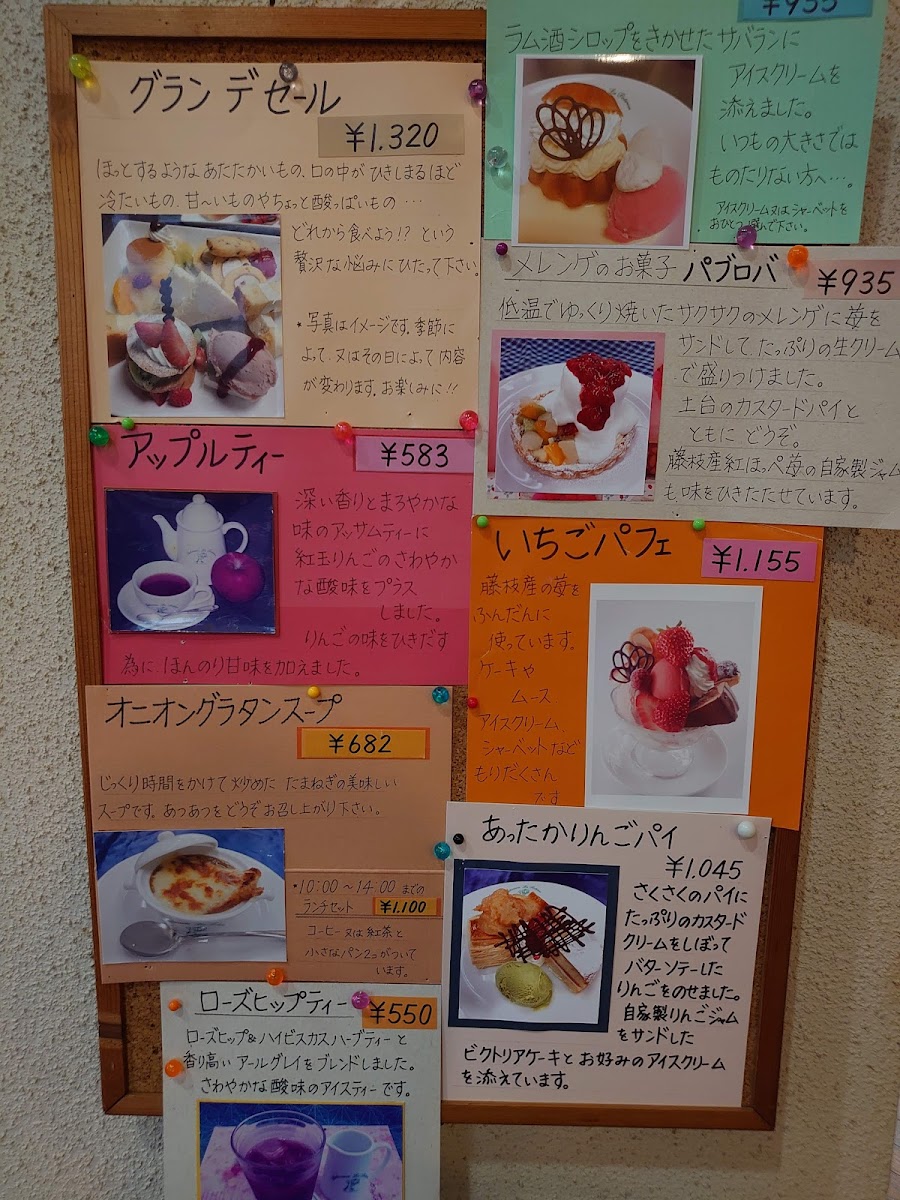 グランデセール
¥1.320
ほっとするような あたたかいもの、口の中が ひきしまるほど
冷たいもの、甘〜いものやちょっと酸っぱいもの…
どれから食べよう!? という
贅沢な悩みにひたって下さい。
*写真はイメージです。季節に
よって、又はその日によって内容
が変わります。お楽しみに!!
アップルティー
¥583
深い香りとまろやかな
味のアッサムティーに
紅玉りんごのさわやか
な酸味をプラス
しました。
りんごの味をひきだす
為に、ほんのり甘味を加えました。
オニオングラタンスープ
¥682
じっくり時間をかけて炒めた たまねぎの美味しい
スープです。あつあつをどうぞお召し上がり下さい。
•10:00〜14:00 までの
ランチセット ¥1.100
コーヒー又は紅茶と
小さなパン2コがついて
います。
ローズヒップティー
¥550
ローズヒップ&ハイビスカスハーブティーと
香り高い アールグレイをブレンドしました。
さわやかな酸味のアイスティーです。
¥935
ラム酒シロップをきかせた サバランに
アイスクリームを
添えました。
いつもの大きさでは
ものたりない方へ…。
アイスクリーム又はシャーベットを
おひとつ選んで下さい。
メレンゲのお菓子 パブロバ
¥935
低温でゆっくり焼いたサクサクのメレンゲに苺を
サンドして、たっぷりの生クリーム
で盛りつけました。
土台のカスタードパイと
ともに どうぞ。
藤枝産紅ほっぺ苺の自家製ジャム
も味をひきたたせています。
いちごパフェ
¥1.155
藤枝産の苺を
ふんだんに
使っています。
ケーキや
ムース
アイスクリーム、
シャーベットなど
もりだくさん
です
あったかりんごパイ
¥1.045
さくさくのパイに
たっぷりのカスタード
クリームをしぼって
バターソテーした
りんごをのせました。
自家製りんごジャム
をサンドした
ビクトリアケーキと お好みのアイスクリーム
を添えています。